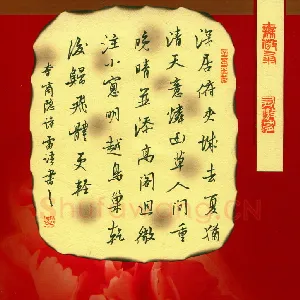 深居俯夹城去夏犹
清天意怜幽草人间重
晚晴并添高阁迥微
注小窗明越鸟巢乾
后归飞体更轻
李商隐诗
书